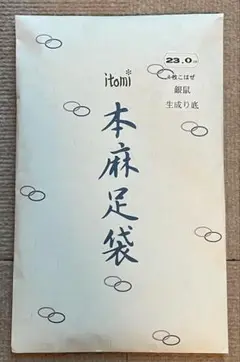 23.0
4枚こはぜ
銀鼠
生成り底
itomi
本麻足袋